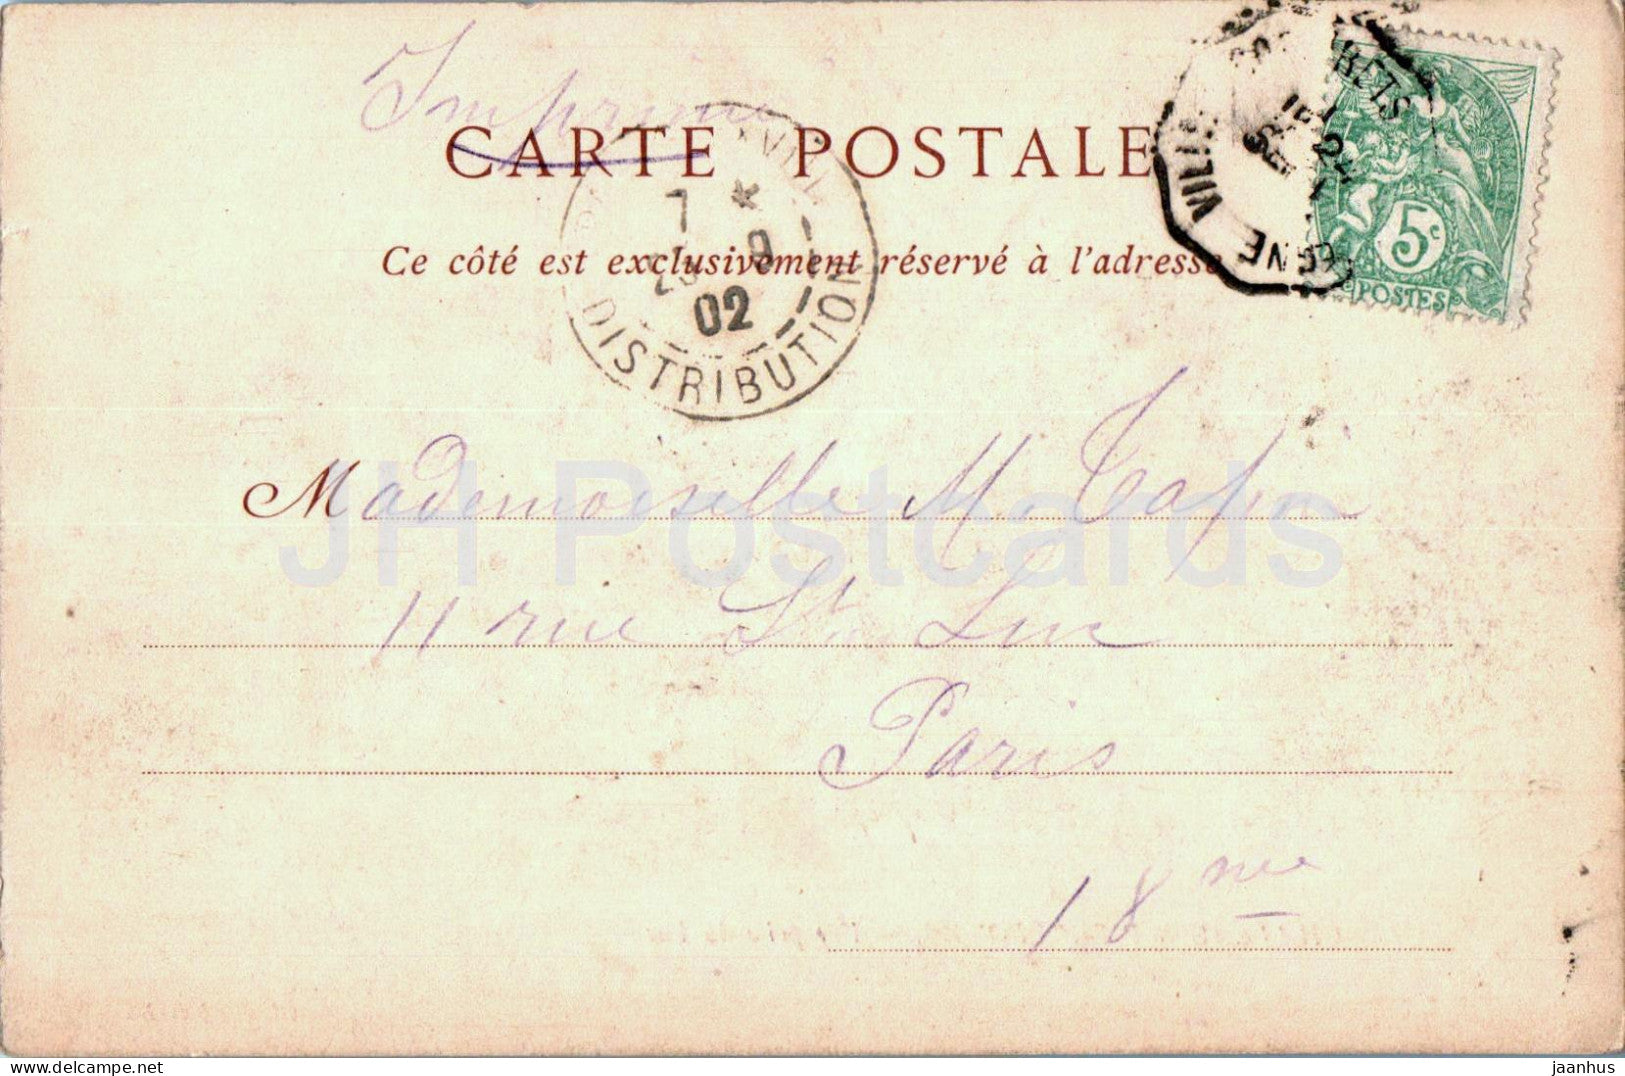 Imprimé
CARTE POSTALE
Ce côté est exclusivement réservé à l'adresse
7 *
9
02
DISTRIBUTION
BETZ
24
SEPT
5c
POSTES
Mademoiselle M. Tapin
11 rue St Luc
Paris
18me
JH Postcards
jaanhus © delcampe.net